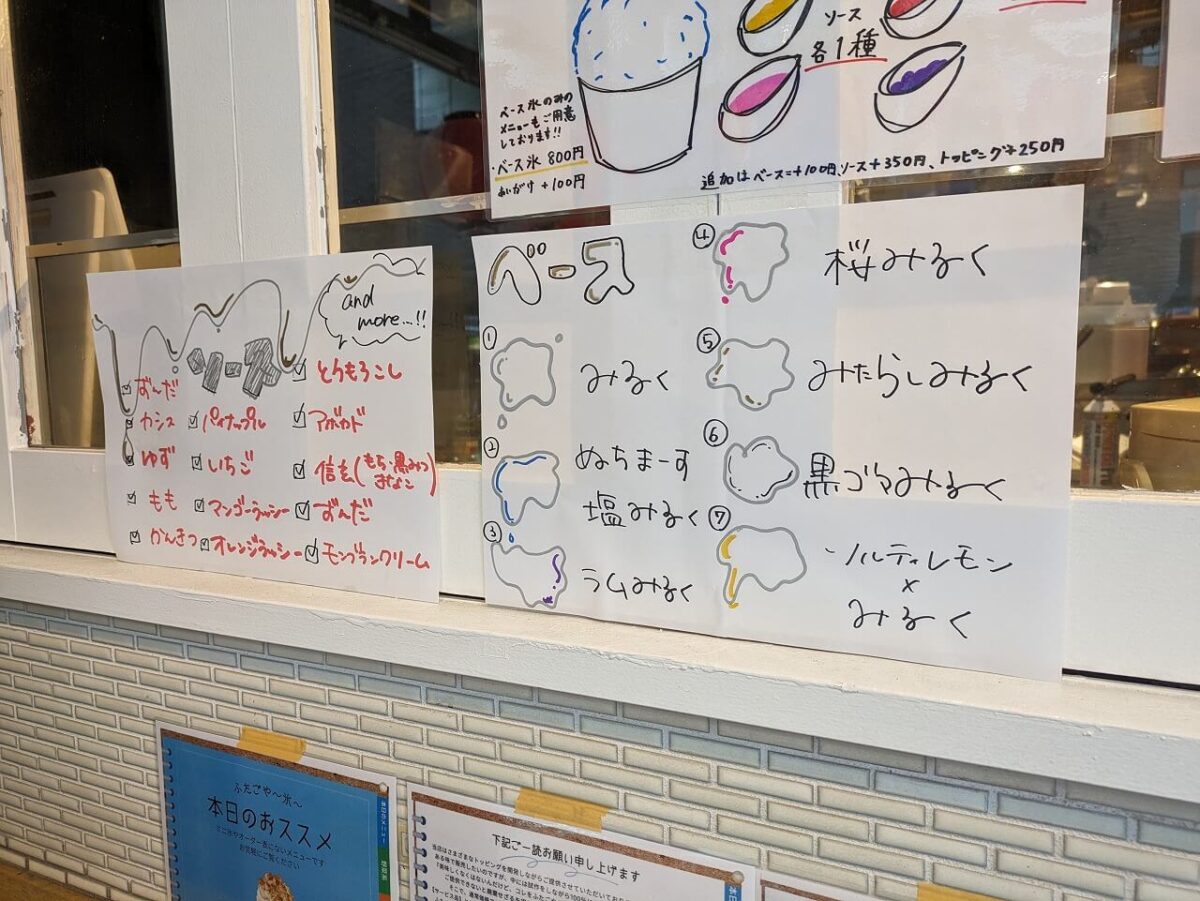 ソース
各1種
ベース氷のみの
メニューもご用意
しております!!
・ベース氷 800円
あいがけ +100円
追加はベース=+100円、ソース+350円、トッピング+250円
and
more...!!
ソース
ずんだ
カシス
ゆず
もも
かんきつ
パイナップル
いちご
マンゴーラッシー
オレンジラッシー
とうもろこし
アボカド
信玄(もち・黒みつ
きなこ)
ずんだ
モンブランクリーム
ベース
① みるく
② ぬちまーす
塩みるく
③ ラムみるく
④ 桜みるく
⑤ みたらしみるく
⑥ 黒ゴマみるく
⑦ ソルティレモン
×
みるく
ふたごや〜氷〜
本日のおススメ
お気軽にご覧ください
本日のメニュー
下記ご一読お願い申し上げます
当店はさまざまなトッピングを開発しながらご提供させていただいており